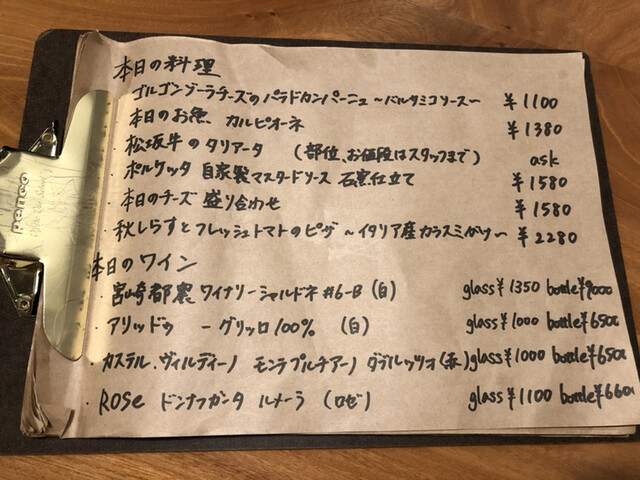 本日の料理
ゴルゴンゾーラチーズのパラドカンパーニュ～バルサミコソース～ ¥1100
本日のお魚 カルピオーネ ¥1380
松坂牛のタリアータ (部位、お値段はスタッフまで) ask
・ポルケッタ 自家製マスタードソース 石窯仕立て ¥1580
・本日のチーズ 盛り合わせ ¥1580
・秋しらすとフレッシュトマトのピザ ～イタリア産カラスミがけ～ ¥2280
本日のワイン
・宮崎都農ワイナリーシャルドネ #6-B (白) glass¥1350 bottle¥9000
・アリッドゥ ーグリッロ100% (白) glass¥1000 bottle¥6500
・カステル.ヴィルディーノ モンテプルチアーノ ダブルッツォ(赤) glass¥1000 bottle¥6500
・ROSe ドンナフガンタ ルメーラ (ロゼ) glass¥1100 bottle¥660